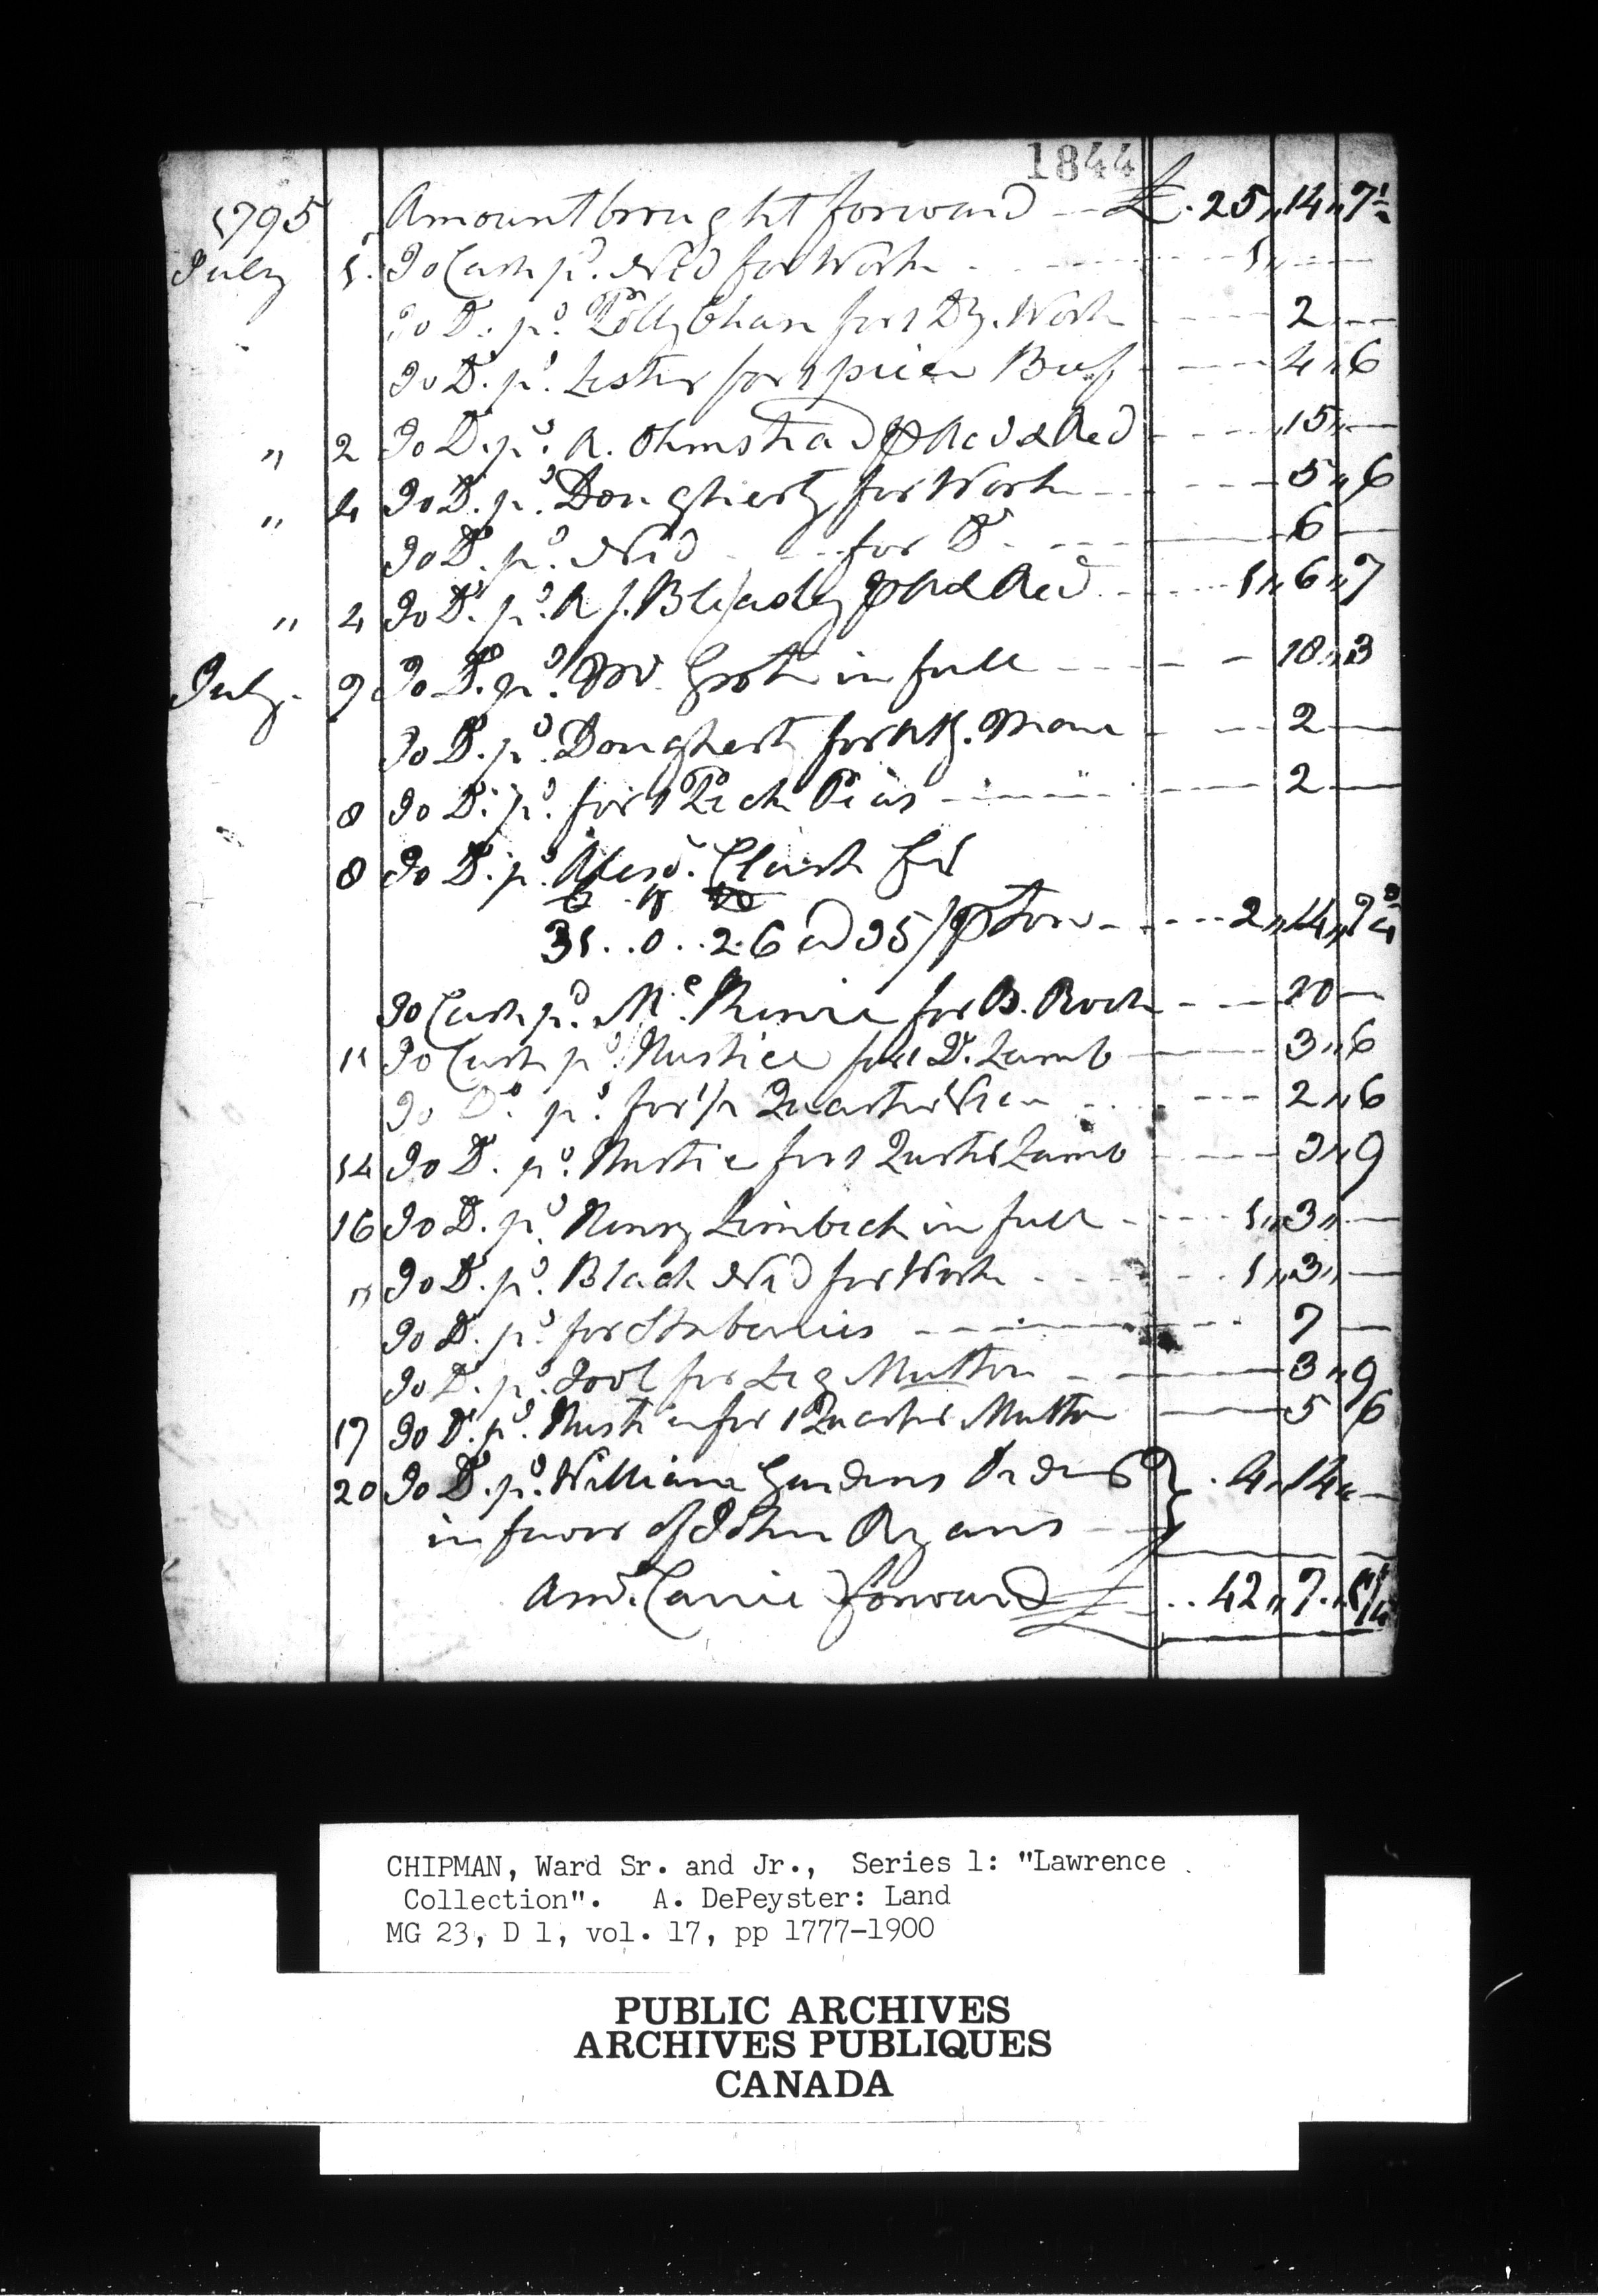 1844
1795 Amount brought forward -- £. 25,, 14,, 7½
July 1. To Cash pd. Ned for Work 1,, --
To Do. pd. Polly Chase for 1 Dy. Work 2 --
To Do. pd. Lester for 1 piece Beef 4,, 6
,, 2 To Do. pd. R. Ohmstead ⅌ Acct & Recd 15,, --
,, 4 To Do. pd. Dougherty for Work 5,, 6
To Do. pd. Ned for Do 6 --
,, 4 To Do. pd. ⅌ A & Recd 1,, 6,, 7
July 7 To Do. pd. in full 18,, 3
To Do. pd. Dougherty for 2 --
8 To Do. pd. for 1 Peck Peas 2 --
8 To Do. pd. Alexd. Clark for
31..0..26 @ 35/ ⅌ Ton 2,, 14,, 7¾
To Cash pd. Mc. for B. 10 --
11 To Cash pd. Hustice for 1 Qr. Lamb 3,, 6
To Do. pd. for 1/2 Quarter 2,, 6
14 To Do. pd. Hustice for 1 Quarter Lamb 3,, 9
16 To Do. pd. Henry Limbeck in full 1,, 3,, --
,, To Do. pd. Black Ned for Work 1,, 3,, --
To Do. pd. for Straberries 7 --
To Do. pd. Tool for Leg Mutton 3,, 9
17 To Do. pd. Hustice for 1 Quarter Mutton 5 6
20 To Do. pd. William Gardens Order } 4,, 14,, --
in favor of John Ryans
Amt. Carrie forward £ 42,, 7,,
CHIPMAN, Ward Sr. and Jr., Series 1: "Lawrence
Collection". A. DePeyster: Land
MG 23, D 1, vol. 17, pp 1777-1900
PUBLIC ARCHIVES
ARCHIVES PUBLIQUES
CANADA